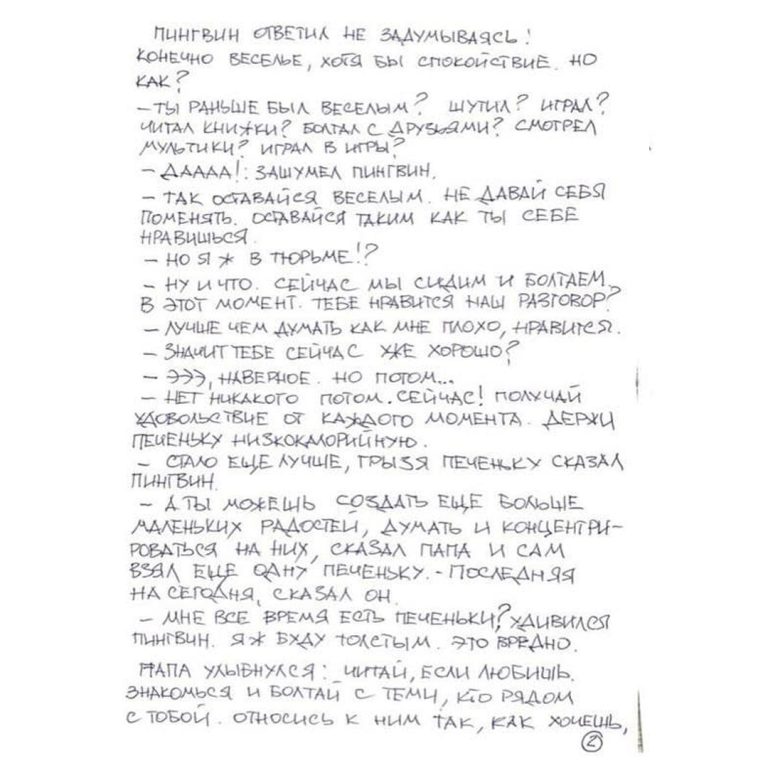 ПИНГВИН ОТВЕТИЛ НЕ ЗАДУМЫВАЯСЬ!
КОНЕЧНО ВЕСЕЛЬЕ, ХОТЯ БЫ СПОКОЙСТВИЕ. НО
КАК?
– ТЫ РАНЬШЕ БЫЛ ВЕСЕЛЫМ? ШУТИЛ? ИГРАЛ?
ЧИТАЛ КНИЖКИ? БОЛТАЛ С ДРУЗЬЯМИ? СМОТРЕЛ
МУЛЬТИКИ? ИГРАЛ В ИГРЫ?
– ДАААА!: ЗАШУМЕЛ ПИНГВИН.
– ТАК ОСТАВАЙСЯ ВЕСЕЛЫМ. НЕ ДАВАЙ СЕБЯ
ПОМЕНЯТЬ. ОСТАВАЙСЯ ТАКИМ КАК ТЫ СЕБЕ
НРАВИШЬСЯ.
– НО Я Ж В ТЮРЬМЕ!?
– НУ И ЧТО. СЕЙЧАС МЫ СИДИМ И БОЛТАЕМ.
В ЭТОТ МОМЕНТ. ТЕБЕ НРАВИТСЯ НАШ РАЗГОВОР?
– ЛУЧШЕ ЧЕМ ДУМАТЬ КАК МНЕ ПЛОХО, НРАВИТСЯ.
– ЗНАЧИТ ТЕБЕ СЕЙЧАС УЖЕ ХОРОШО?
– ЭЭЭ, НАВЕРНОЕ. НО ПОТОМ...
– НЕТ НИКАКОГО ПОТОМ. СЕЙЧАС! ПОЛУЧАЙ
УДОВОЛЬСТВИЕ ОТ КАЖДОГО МОМЕНТА. ДЕРЖИ
ПЕЧЕНЬКУ НИЗКОКАЛОРИЙНУЮ.
– СТАЛО ЕЩЕ ЛУЧШЕ, ГРЫЗЯ ПЕЧЕНЬКУ СКАЗАЛ
ПИНГВИН.
– А ТЫ МОЖЕШЬ СОЗДАТЬ ЕЩЕ БОЛЬШЕ
МАЛЕНЬКИХ РАДОСТЕЙ, ДУМАТЬ И КОНЦЕНТРИ-
РОВАТЬСЯ НА НИХ, СКАЗАЛ ПАПА И САМ
ВЗЯЛ ЕЩЕ ОДНУ ПЕЧЕНЬКУ. – ПОСЛЕДНЯЯ
НА СЕГОДНЯ, СКАЗАЛ ОН.
– МНЕ ВСЕ ВРЕМЯ ЕСТЬ ПЕЧЕНЬКИ? УДИВИЛСЯ
ПИНГВИН. Я Ж БУДУ ТОЛСТЫМ. ЭТО ВРЕДНО.
ПАПА УЛЫБНУЛСЯ: ЧИТАЙ, ЕСЛИ ЛЮБИШЬ.
ЗНАКОМЬСЯ И БОЛТАЙ С ТЕМИ, КТО РЯДОМ
С ТОБОЙ. ОТНОСИСЬ К НИМ ТАК, КАК ХОЧЕШЬ,
2